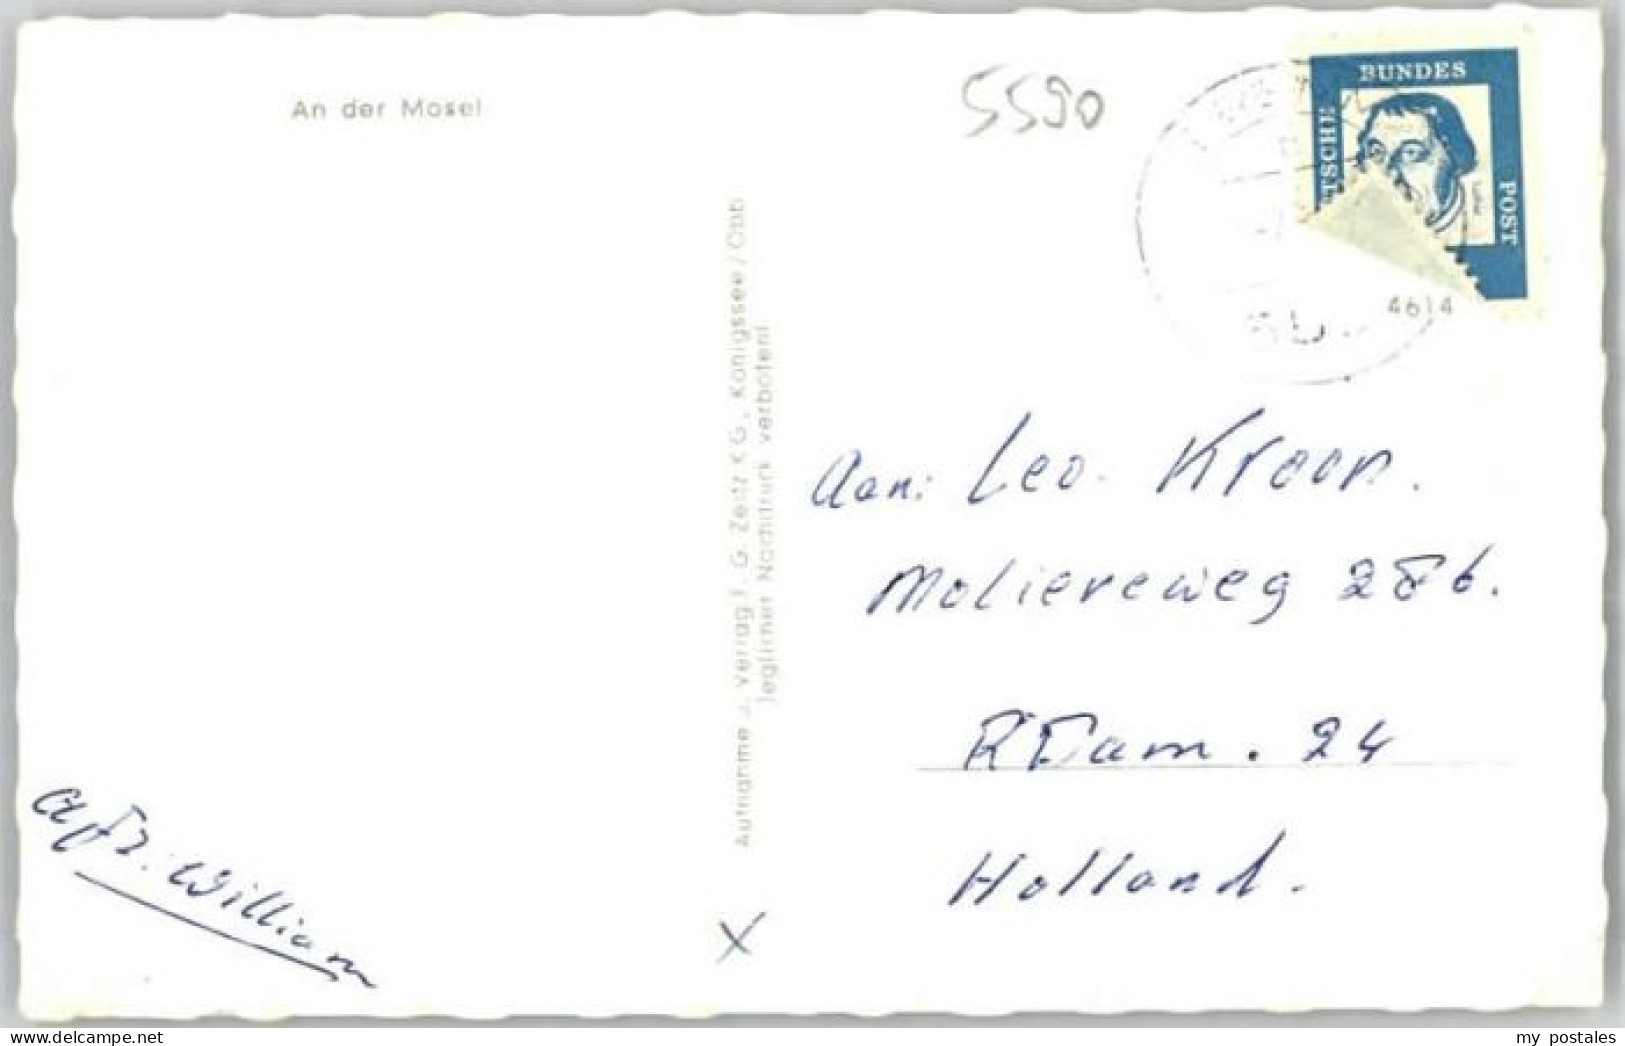 An der Mosel
5590
BUNDES
TSCHE
POST
Luther
4614
Aufnahme u. Verlag: G. Zeitz KG., Königssee/Obb
Jeglicher Nachdruck verboten!
Aan: Leo. Kroon.
Moliereweg 286.
RDam. 24
Holland.
William
X
delcampe.net
my_postales